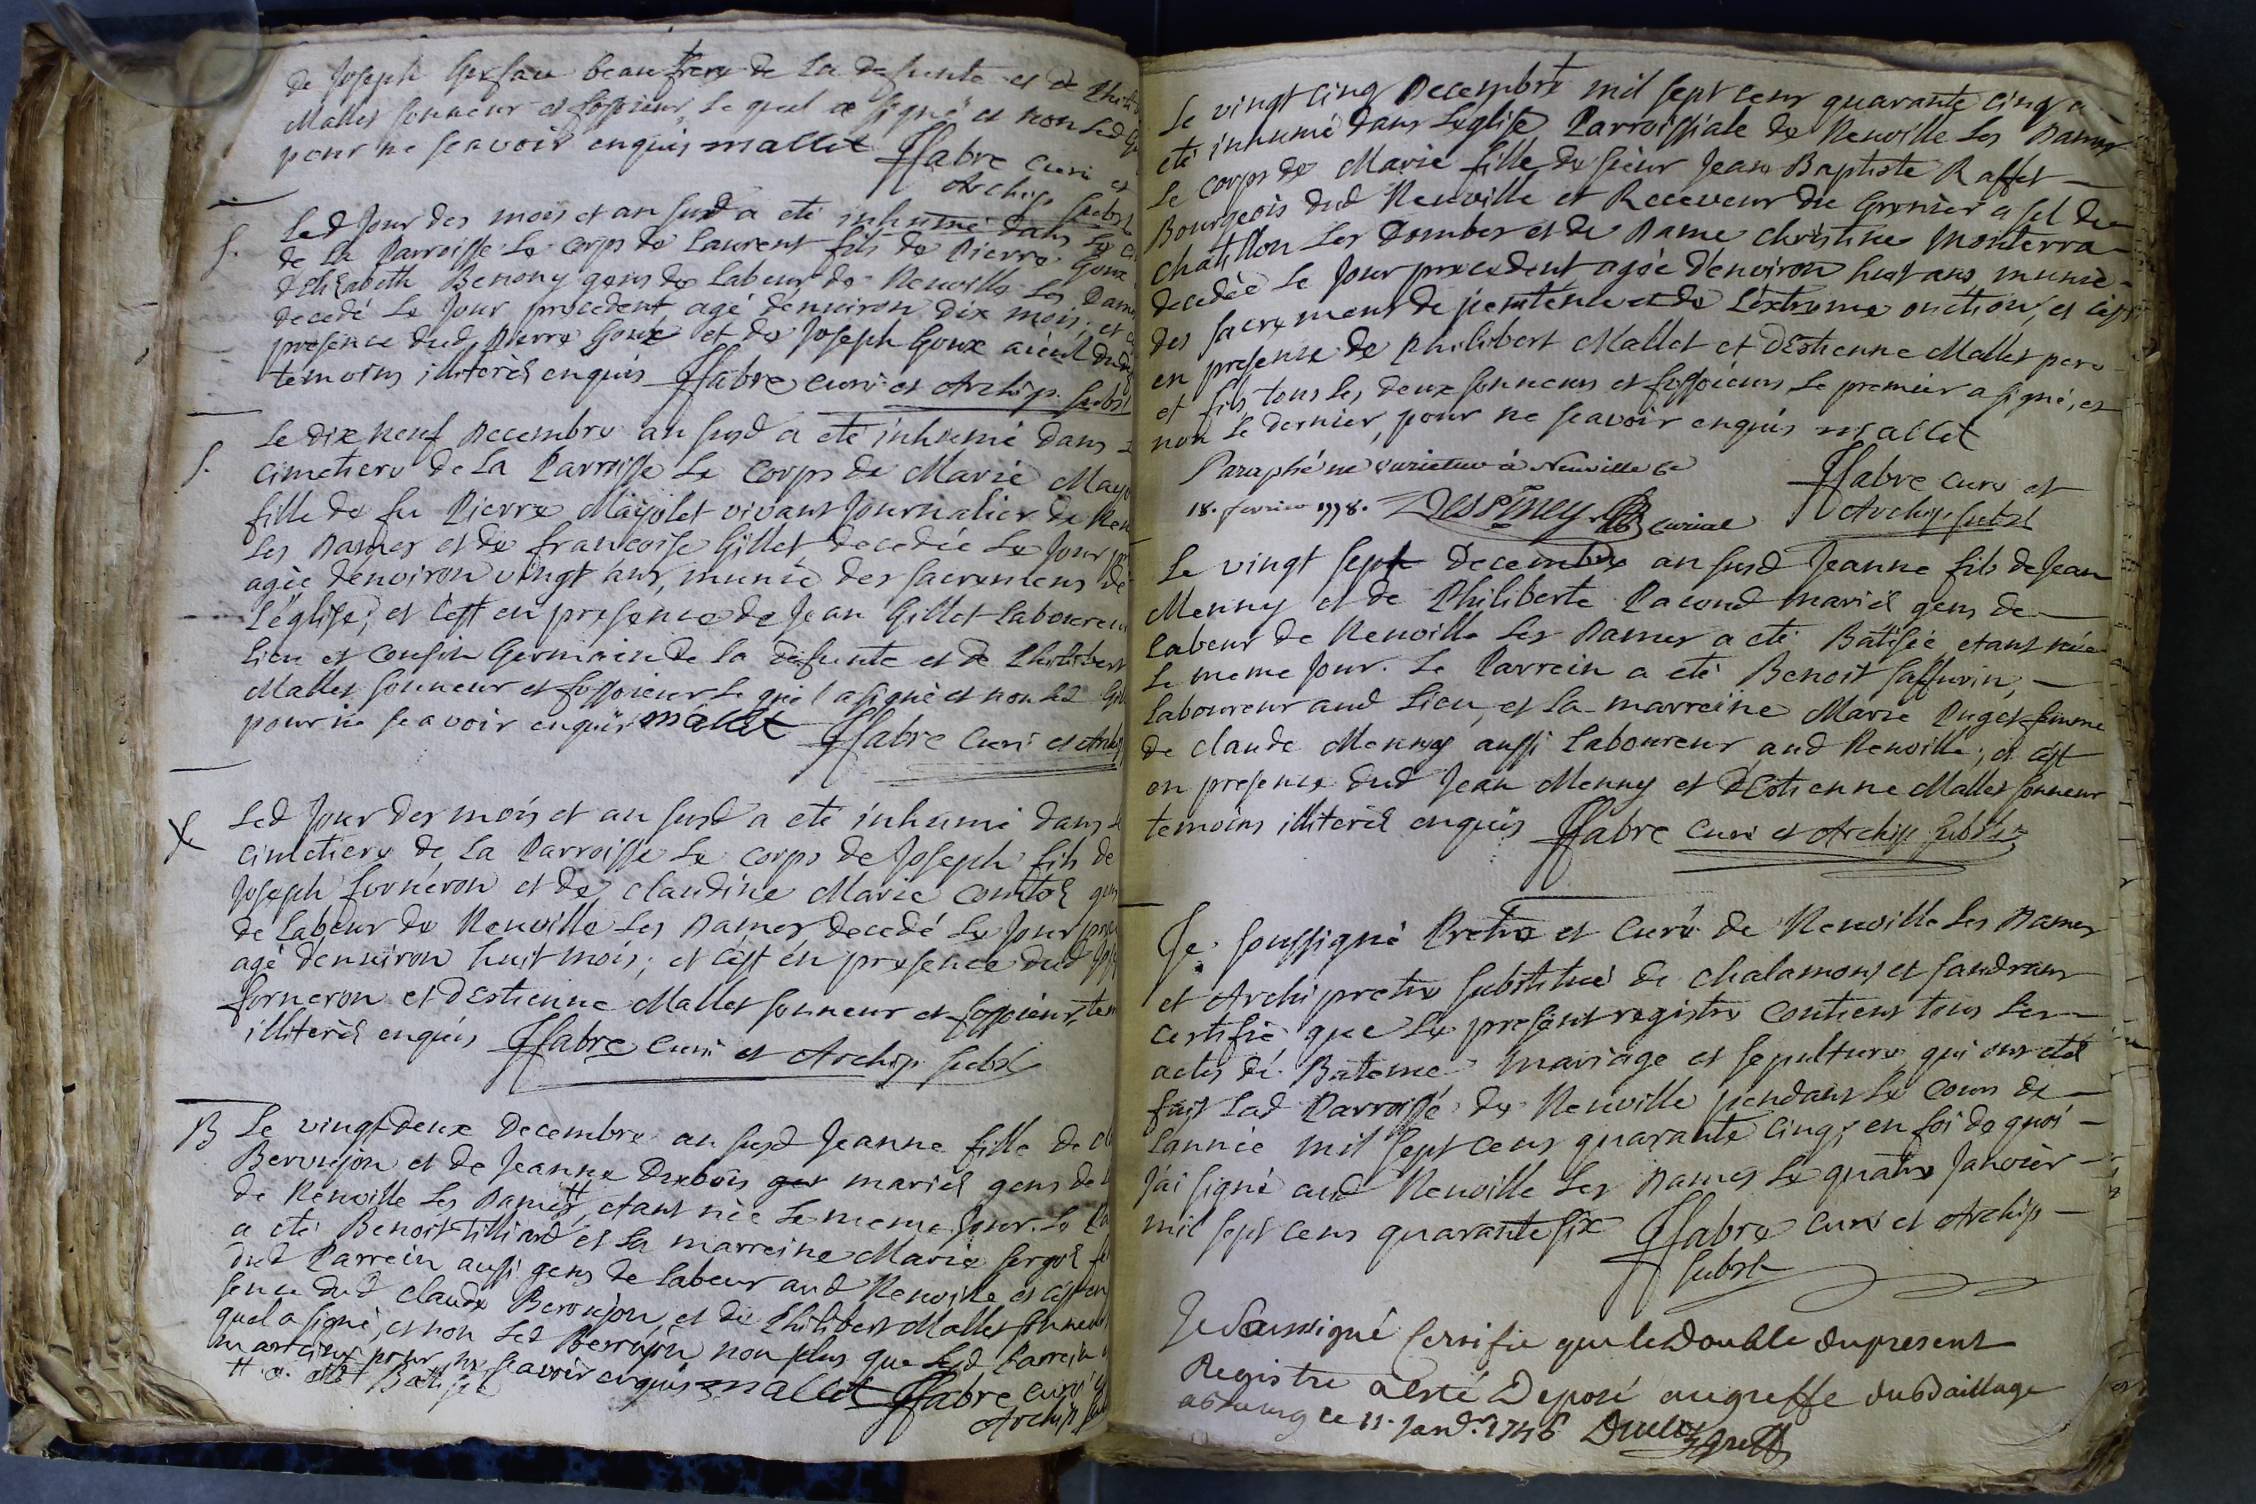 de Joseph beaufrere de La defunte et de
Mallet sonneur et fossoieur, Le quel a signé et non led
pour ne scavoir enquis mallet ffabre curé et
Archip. subst
S. Led Jour des mois et an susd a eté inhumé dans Le
de La Parroisse Le corps de Laurent fils de Pierre Goux
d'Elizabeth Benony gens de Labeur de Neuville Les Dames
decedé Le Jour precedent agé d'environ dix mois, et
presence dud Pierre Goux et de Joseph Goux aieul dud
temoins illiterés enquis ffabre curé et Archip. subst
S. Le dix neuf Decembre an susd a eté inhumé dans Le
cimetiere de La Parroisse Le corps de Marie
fille de fu Pierre Mayolet vivant Journalier de
Les Dames et de francoise Gillet decedée Le Jour
agée d'environ vingt ans, munie des sacremens de
L'église; et c'est en presence de Jean Gillet Laboureur
Lieu et cousin Germain de La defunte et de Philibert
Mallet sonneur et fossoieur Le quel a signé et non led
pour ne scavoir enquis mallet ffabre Curé et Archip
S Led Jour des mois et an susd a eté inhumé dans Le
cimetiere de La Parroisse Le corps de Joseph fils de
Joseph forneron et de claudine Marie gens
de Labeur de Neuville Les Dames decedé Le Jour
agé d'environ huit mois; et c'est en presence dud
forneron et d'Estienne Mallet sonneur et fossoieur,
illiterés enquis ffabre curé et Archip subst
B Le vingt deux Decembre an susd Jeanne fille de
Beroujon et de Jeanne Dubois mariés gens de
de Neuville Les Dames # etant née Le meme Jour. Le
a eté Benoit Tilliard et La marreine Marie
dud Parrein aussi gens de Labeur aud Neuville et c'est en
sence dud claude Beroujon, et de Philibert Mallet sonneur
quel a signé, et non led Berroujon non plus que Led Parrein
marreine pour ne scavoir enquis mallet ffabre curé
# a eté Batisée Archip
Le vingt cinq Decembre mil sept cens quarante cinq a
eté inhumé dans L'eglise Parroissiale de Neuville Les Dames
Le corps de Marie fille de sieur Jean Baptiste Raffet
Bourgeois dud Neuville et Receveur du Grenier a sel de
chatillon Les Dombes et de Dame christine Monterra
decedée Le Jour precedent agée d'environ huit ans munie
des sacremens de penitence et de L'extreme onction, et c'est
en presence de Philibert Mallet et d'Estienne Mallet pere
et fils tous les deux sonneurs et fossoieurs Le premier a signé, et
non Le dernier, pour ne scavoir enquis mallet
Paraphé ne varietur à Neuville ce ffabre curé et
18. fevrier Archip. subst
Le vingt sept Decembre an susd Jeanne fils de Jean
Menny et de Philiberte Pacoud mariés gens de
Labeur de Neuville Les Dames a eté Batisée, etant née
Le meme Jour. Le Parrein a eté Benoit
Laboureur aud Lieu, et La marreine Marie Puget femme
de claude Menny aussi Laboureur aud Neuville; et c'est
en presence dud Jean Menny et d'Estienne Mallet sonneur
temoins illiterés enquis ffabre curé et Archip subst
Je soussigné Pretre et curé de Neuville Les Dames
et Archipretre substitué de chalamont et sandrans
certifie que Le present registre contient tous Les
actes de Bateme mariage et sepulture qui ont eté
fait Lad Parroisse de Neuville pendant Le cours de
L'année mil sept cens quarante cinq; en foi de quoi
J'ai signé aud Neuville Les Dames Le quatre Janvier
mil sept cens quarante six ffabre curé et Archip
subst
Je Soussigné Certifie que le Double du present
Registre a esté Deposé au greffe du Baillage
a Bourg ce 11. Janv. 1746